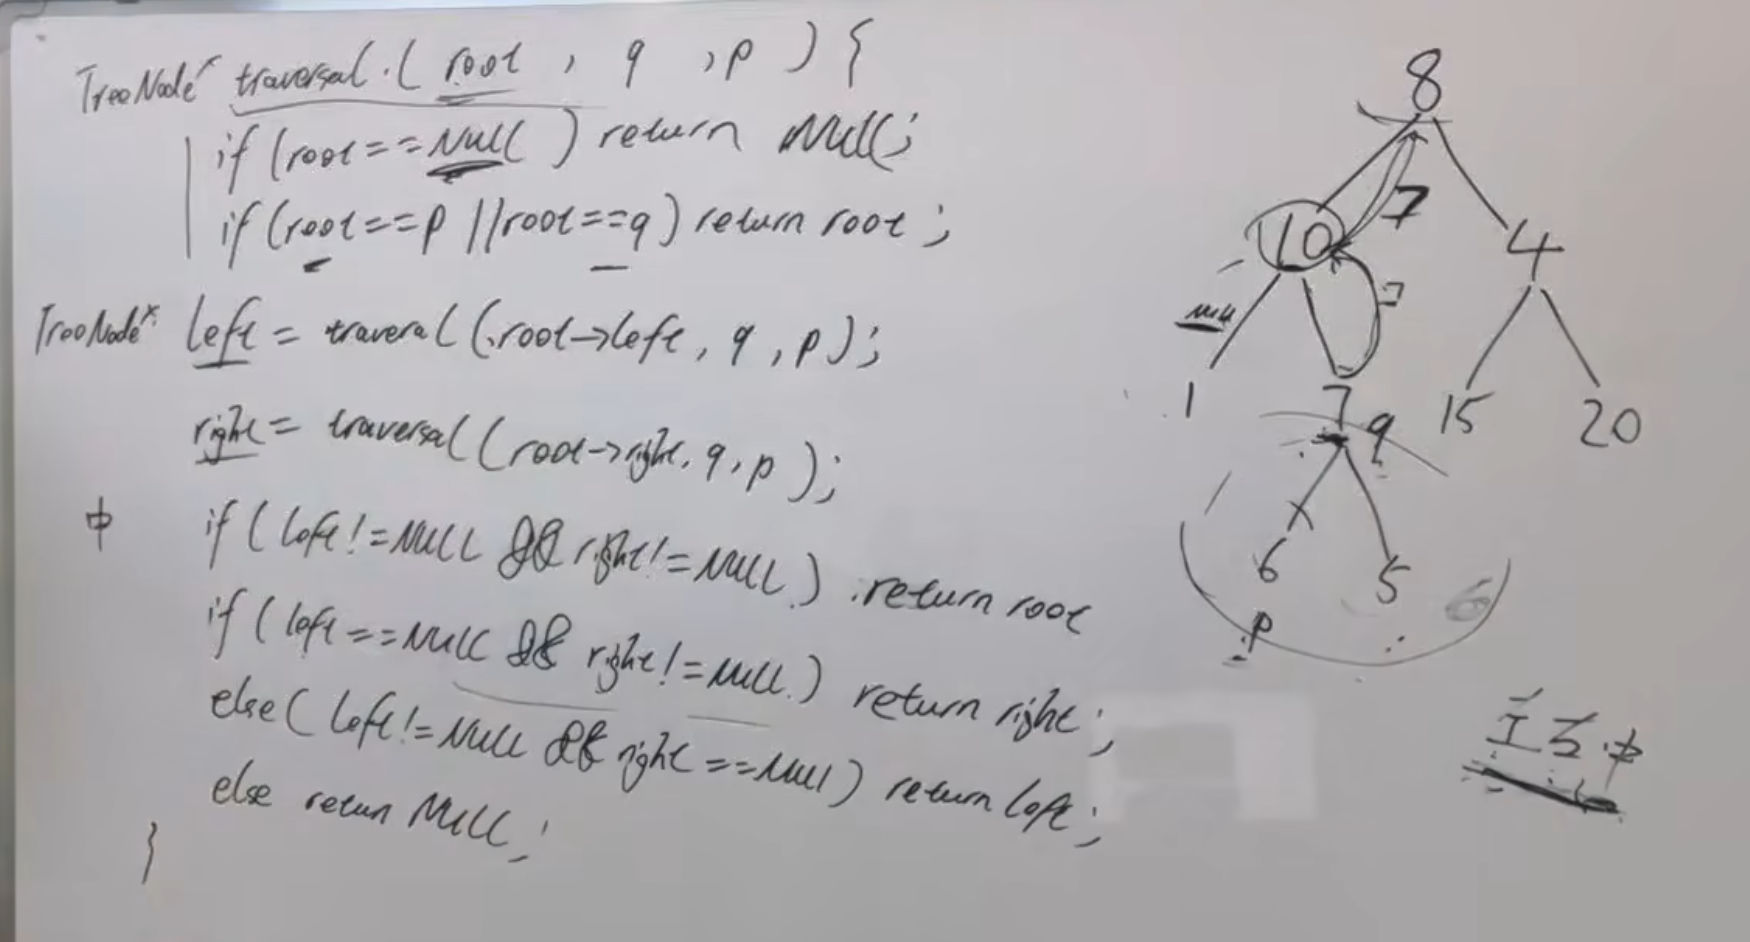 TreeNode* traversal (root, q, p) {
if (root==NULL) return NULL;
if (root==p || root==q) return root;
TreeNode* left = traveral (root->left, q, p);
right = traversal (root->right, q, p);
中 if (left!=NULL && right!=NULL) return root
if (left==NULL && right!=NULL) return right;
else (left!=NULL && right==NULL) return left;
else return NULL;
}
8
7
10 4
null 7
1 7 15 20
q
6 5
p
中